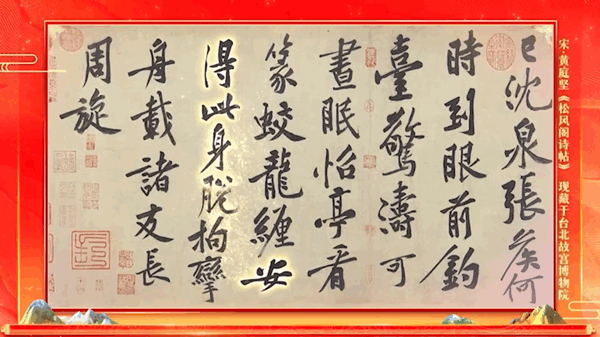 已沈泉張侯何
時到眼前釣
臺驚濤可
晝眠怡亭看
篆蛟龍纏安
得此身脫拘攣
舟載諸友長
周旋
宋·黄庭坚《松风阁诗帖》 现藏于台北故宫博物院